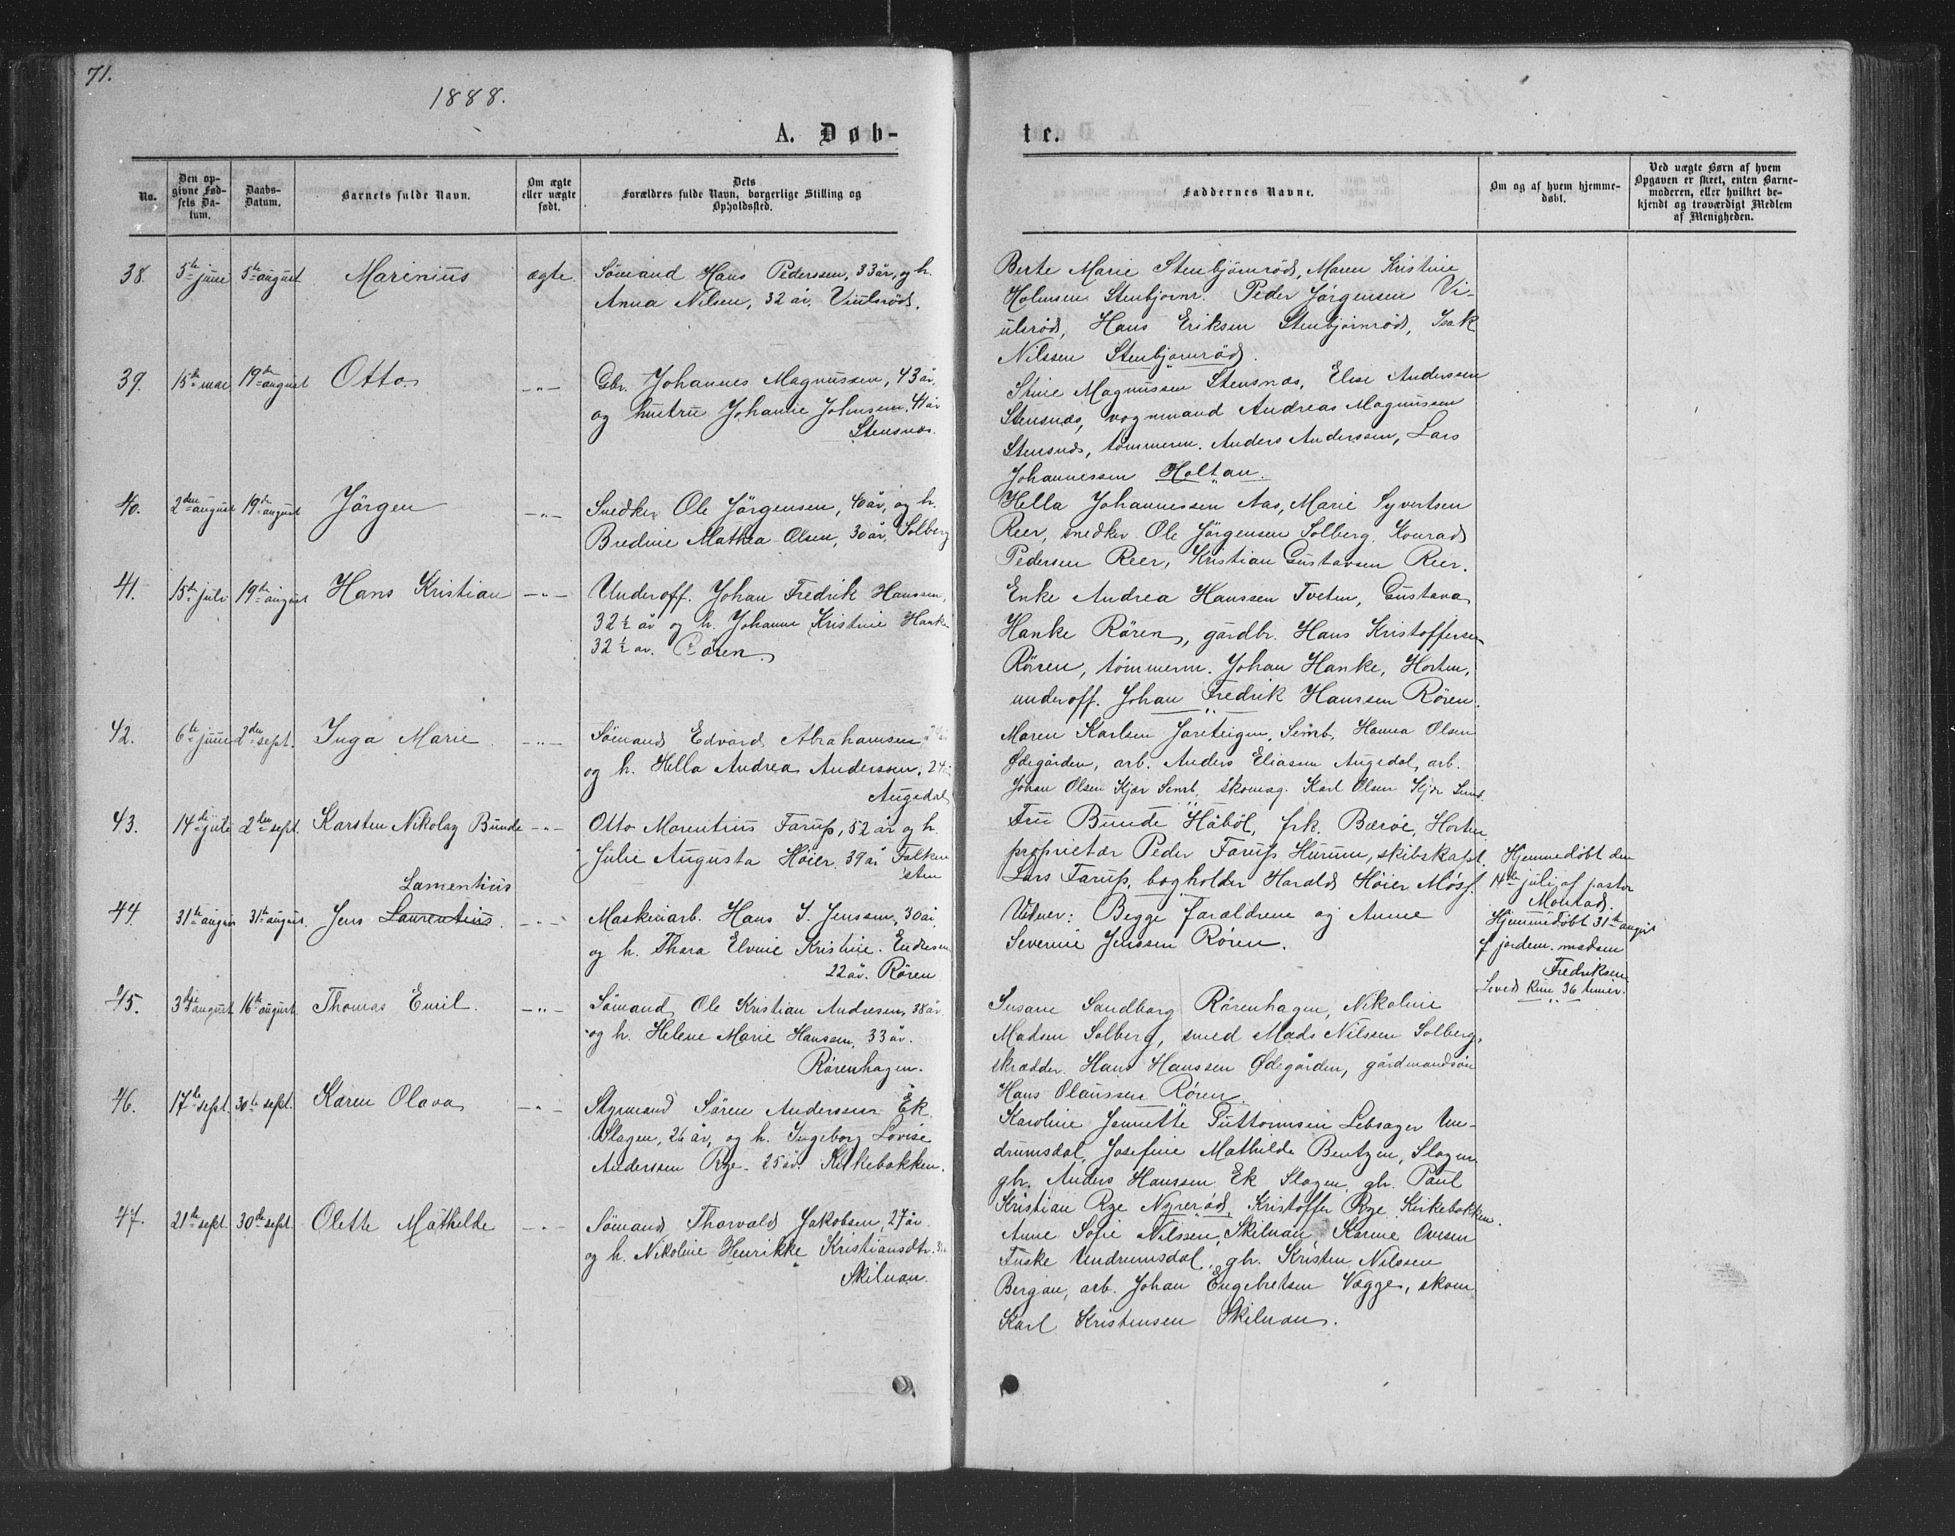 71.
1888.
A. Døb-
te.
No.
Den op-
givne Fød-
sels Da-
tum.
Daabs-
Datum.
Barnets fulde Navn.
Om ægte
eller uægte
født.
Dets
Forældres fulde Navn, borgerlige Stilling og
Opholdssted.
Faddernes Navne.
Om og af hvem hjemme-
døbt.
Ved uægte Børn af hvem
Opgaven er skeet, enten Barne-
moderen, eller hvilket be-
kjendt og troværdigt Medlem
af Menigheden.
38. 5te juni 5te august Marinius ægte.
Sømand Hans Pederssen, 33 år, og h.
Anna Nilsen, 32 år, Viulsrød.
Berte Marie Stenbjørnrød, Maren Kristine
Holmsen Stenbjørnr. Peder Jørgensen Vi-
ulsrød, Hans Eriksen Stenbjørnrød, Isak
Nilssen Stenbjørnrød.
39. 15de mai 19de august Otto -"-
Gbr. Johannes Magnussen, 43 år,
og hustru Johanne Johnsen, 41 år
Stensnæs.
Stine Magnussen Stensnæs, Elise Anderssen
Stensnæs, vognmand Andreas Magnussen
Stensnæs, tømmerm. Anders Anderssen, Lars
Johannessen Holtan.
40. 2den august 19de august Jørgen -"-
Snedker Ole Jørgensen, 40 år, og h.
Bredine Mathea Olsen, 30 år, Solberg
Hella Johannessen Aas, Marie Syvertsen
Reer, snedker Ole Jørgensen Solberg, Konrad
Pedersen Reer, Kristian Gustavsen Reer.
41. 15de juli 19de august Hans Kristian -"-
Underoff. Johan Fredrik Hanssen,
32½ år og h. Johanne Kristine Hanke
32½ år. Røren.
Enke Andrea Hanssen Tveten, Gustava
Hanke Røren, gårdbr. Hans Kristoffersen
Røren, tømmerm. Johan Hanke, Horten,
underoff. Johan Fredrik Hanssen Røren.
42. 6te juni 2den sept. Inga Marie -"-
Sømand Edvard Abrahamsen,
og h. Hella Andrea Anderssen, 24
Augedal
Maren Karlsen Jareteigen, Semb, Hanna Olsen
Ødegården, arb. Anders Eliasen Augedal, arb.
Johan Olsen Kjær Semb, skomag. Karl Olsen Kjær Semb.
43. 14de juli 2den sept. Karsten Nikolay Bunde -"-
Otto Morentius Farup, 52 år og h.
Julie Augusta Høier, 39 år Falken
sten
Fru Bunde Håbøl, frk. Bærøe, Horten
proprietær Peder Farup Hurum, skibskapt.
Lars Farup, bogholder Harald Høier Moss.
Hjemmedøbt den
14de juli af pastor
Monrad.
44. 31te august 31te august. Lamentius
Jens Laurentius. -"-
Maskinarb. Hans J. Jenssen, 30 år,
og h. Thora Elvine Kristine Endresen
22 år. Røren
Vidner: Begge forældrene og Anne
Severine Jenssen Røren.
Hjemmedøbt 31te august
af jordem. madam
Fredriksen
Leved kun 36 timer.
45. 3die august 16de august Thomas Emil. -"-
Sømand Ole Kristian Andresen, 38 år
og h. Helene Marie Hanssen, 33 år.
Rørenhagen.
Susane Sandborg Rørenhagen, Nikoline
Madsen Solberg, smed Mads Nilssen Solberg,
skrædder Hans Hanssen Ødegården, gårdmandsøn
Hans Olaussen Røren.
46. 17de sept. 30te sept. Karen Olava -"-
Styrmand Søren Anderssen Ek
Slagen, 26 år, og h. Ingeborg Lovise
Anderssen Rge. 25 år. Kirkebakken.
Karoline Jennette Guttormsen Lebsager Un-
drumsdal, Josefine Mathilde Bentzen, Slagen
gbr. Anders Hanssen Ek Slagen, gbr. Paul
Kristian Rge Nyrerød, Kristoffer Rge Kirkebakken.
47. 21de sept. 30te sept. Olette Mathilde -"-
Sømand Thorvald Jakobsen, 27 år.
og h. Nikoline Henrikke Kristiansdtr.
Skilvan.
Anne Sofie Nilssen, Skilvan, Karine Ovesen
Fuske Undrumsdal, gbr. Kristen Nilssen
Bergan, arb. Johan Engebretsen Vægge, skom
Karl Kristensen Skilvan.